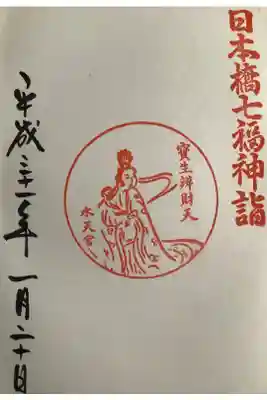 日本橋七福神詣
寶生辨財天
水天宮
平成三十一年一月二十日